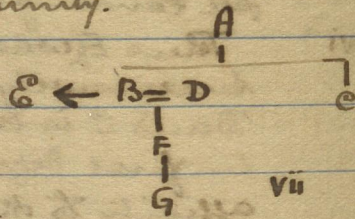 A
E ← B = D C
F
G vii